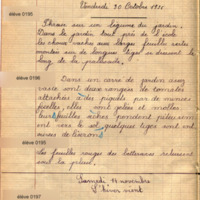 Vendredi 30 Octobre 1931
élève 0195
Phrase sur un légume du jardin.
Dans le jardin tout près de l'école
les choux-vaches aux larges feuilles vertes
montés sur de longues tiges se dressent le
long de la palissade.
élève 0196
Dans un carré de jardin assez
vaste sont deux rangées de tomates
attachées à des piquets par de minces
ficelles, elles sont jolies et molles
leurs feuilles sèches pendent
vers le sol, quelques tiges sont
élève 0195
Les feuilles rouges des betteraves reluisent
sous la pluie.
élève 0197
Samedi novembre
L'hiver vient